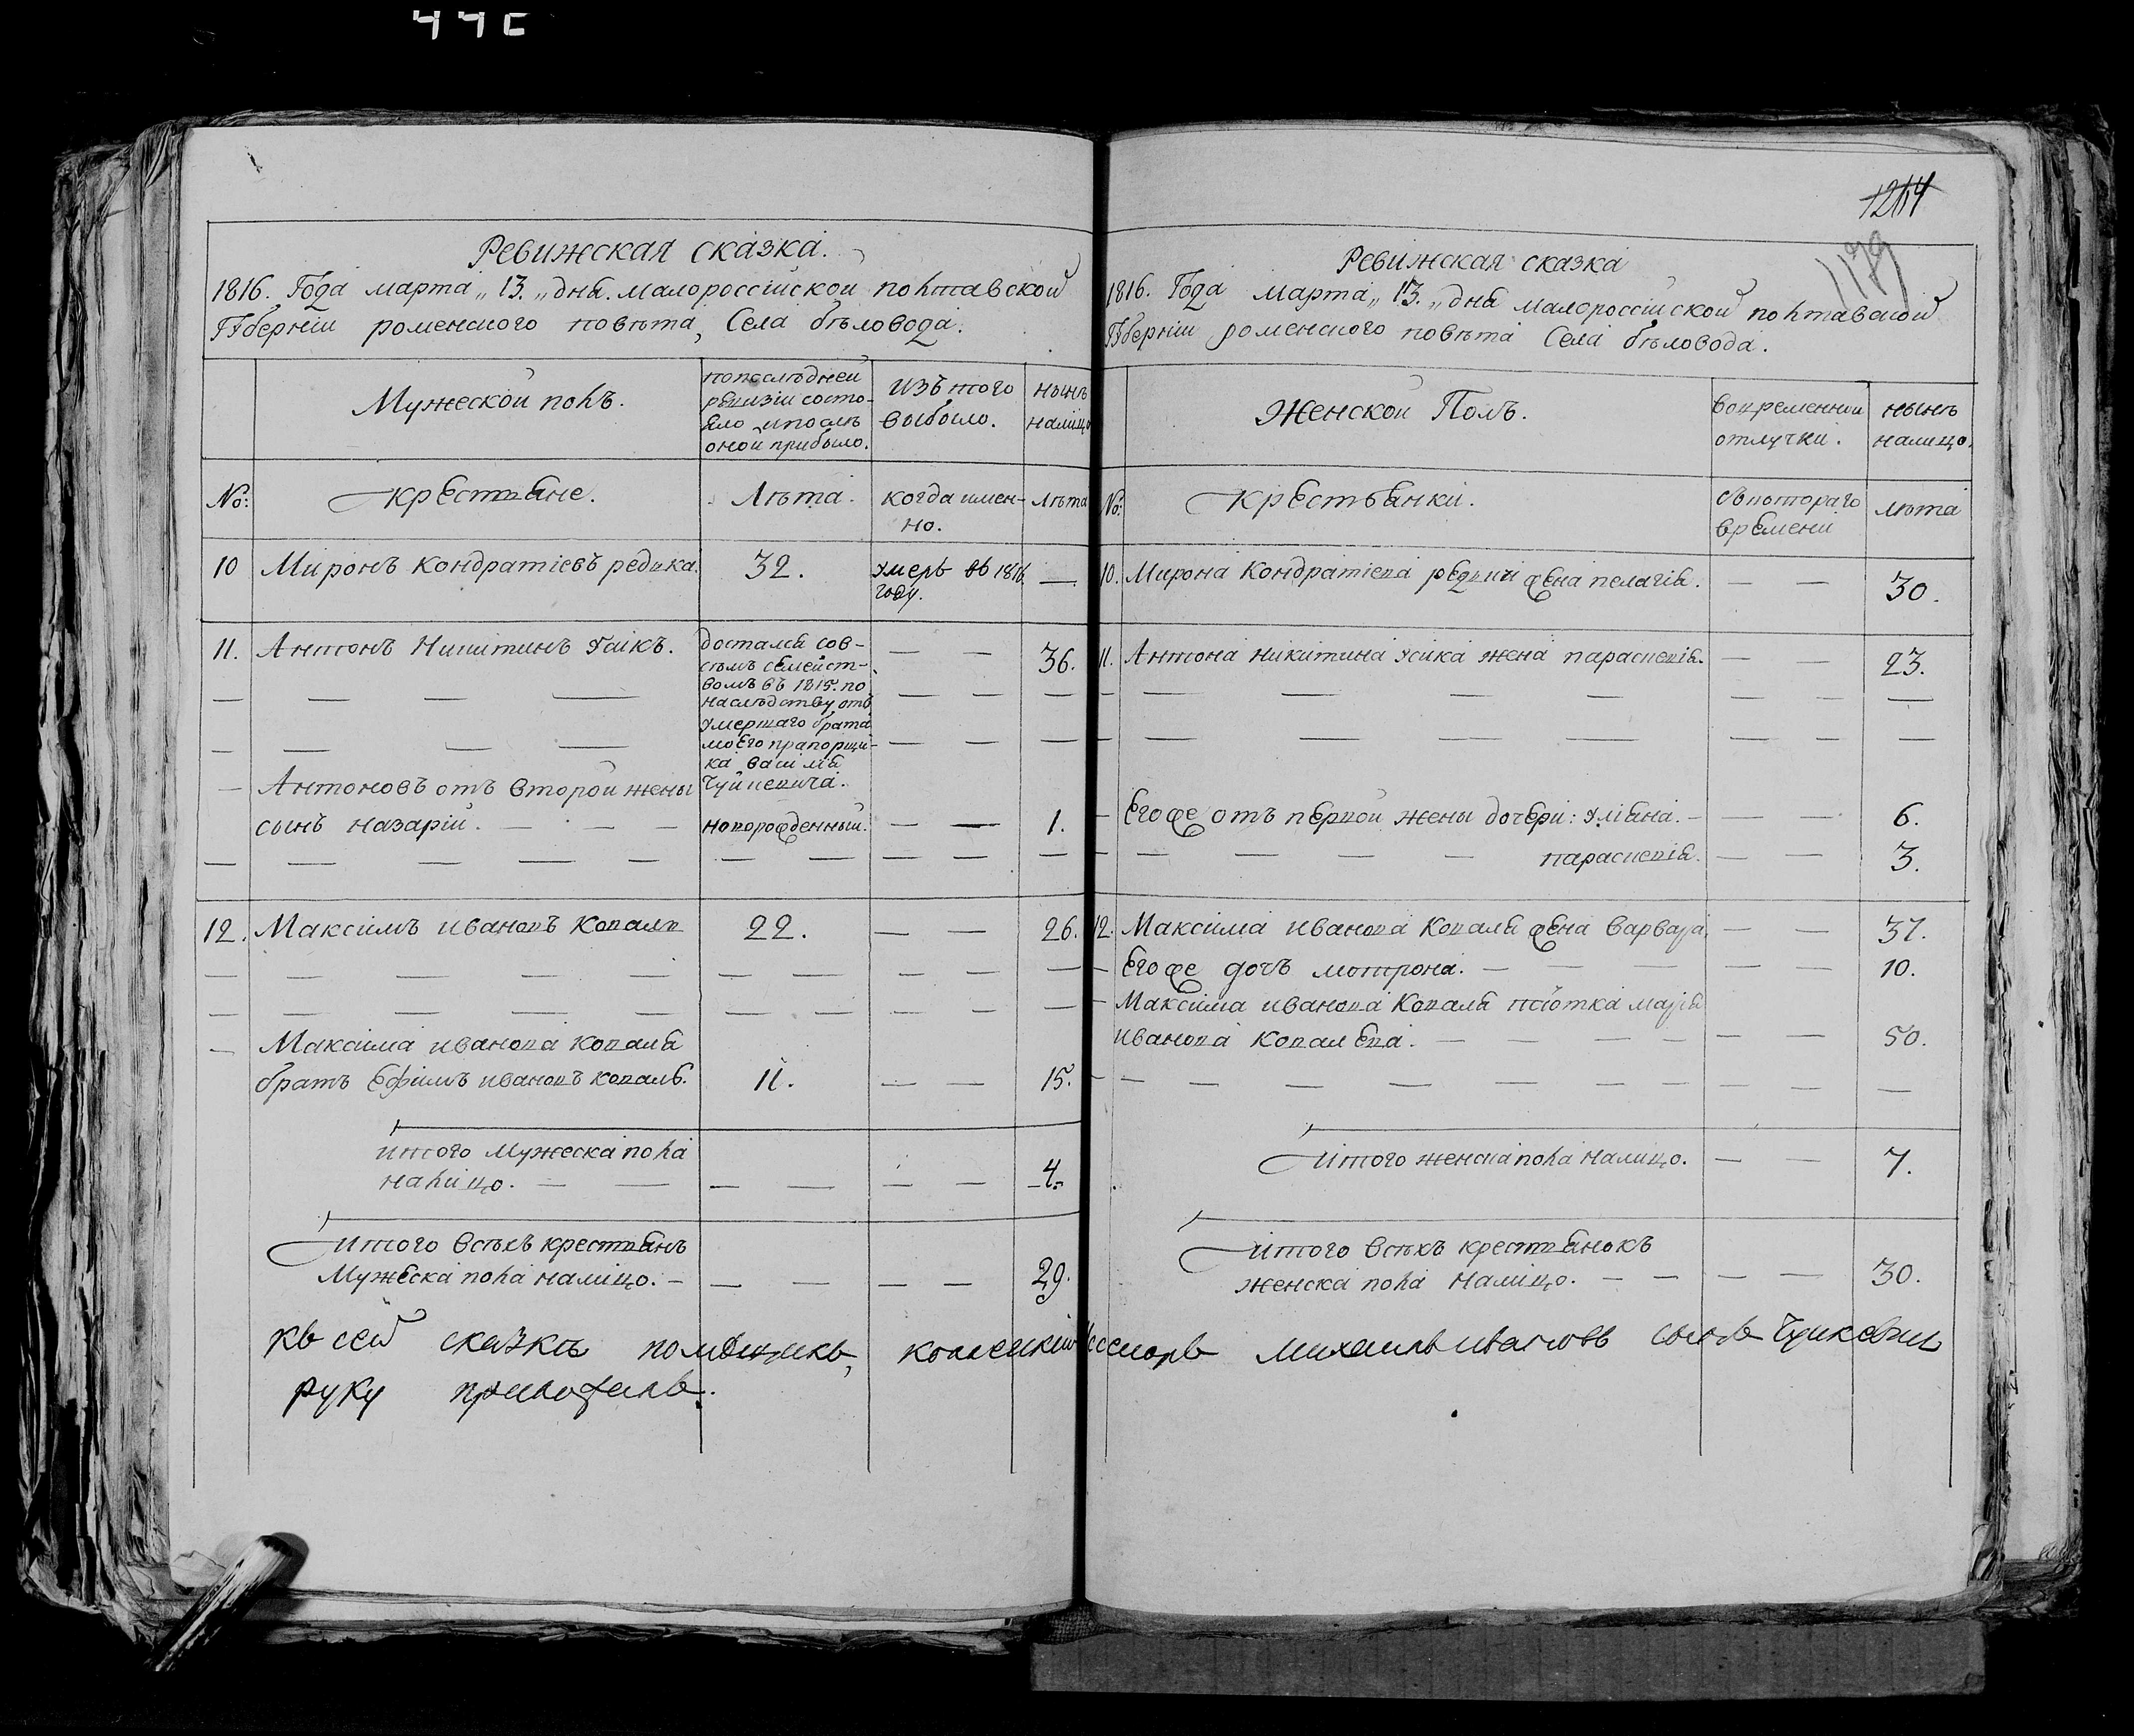 44С
Ревижская сказка.
1816. Года марта „13.„ дня. малороссійской полтавской
Губерніи роменского повѣта, Села бѣловода.
Мужеской полъ.
попослѣдней
ревизіи состо-
яло ипослѣ
оной прибыло.
изъ того
выбыло.
нынѣ
налицо
No:
крестьяне.
Лѣта.
когда имен-
но.
лѣта
10 Миронъ Кондратіевъ редька. 32. умеръ въ 1816 —
году.
11. Антонъ Никитинъ Усикъ. достался сов- — — 36.
сѣмъ семейст-
вомъ въ 1815. по
наслѣдству отъ
умершаго брата
моего прапорщи-
ка василія
Чуйкевича.
— Антоновъ отъ второй жены
сынъ назарій. — — — новорожденный. — — 1.
12. Максимъ ивановъ Коваль 22. — — 26.
— Максима иванова коваля
братъ Ефимъ ивановъ коваль. 11. — — 15.
итого Мужеска пола
налицо. — — — — — — 4.
итого всѣхъ крестьянъ
Мужеска пола налицо. — — — — — 29.
къ сей сказкѣ помѣщикъ, колежкій Ассесоръ михаилъ ивановъ сынъ Чуйкевичъ
руку приложилъ.
1264
1179
Ревижская сказка
1816. Года марта „13.„ дня малороссійской полтавской
Губерніи роменского повѣта Села бѣловода.
Женской Полъ.
вовременной
отлучки.
нынѣ
налицо.
No:
крестьянки.
съкотораго
времени
лѣта
10. Мирона Кондратіева редьки жена пелагія. — — 30.
11. Антона никитина усика жена параскевія. — — 23.
— Егоже отъ первой жены дочери: уліяна. — — — 6.
параскевія. — — 3.
12. Максима иванова Коваля жена варвара. — — 37.
— Егоже дочъ мотрона. — — — — — 10.
— Максима иванова Коваля тіотка марія
иванова ковалева. — — — — — — 50.
итого женска пола налицо. — — 7.
итого всѣхъ крестьянокъ
женска пола налицо. — — — — 30.